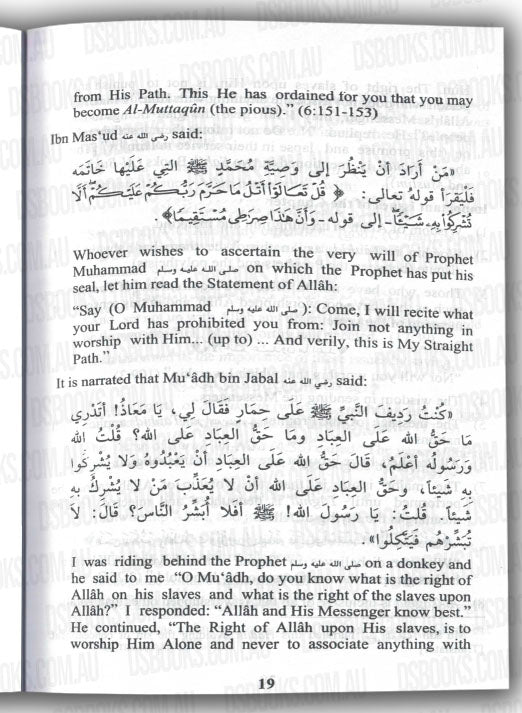 from His Path. This He has ordained for you that you may
become Al-Muttaqûn (the pious)." (6:151-153)
Ibn Mas'ud رضي الله عنه said:
«مَنْ أَرَادَ أَنْ يَنْظُرَ إِلى وَصِيَّةِ مُحَمَّدٍ ﷺ التي عَلَيْها خَاتَمُه
فَلْيَقرَأ قولهُ تعالى: ﴿ قُلْ تَعَالَوْا أَتْلُ مَا حَرَّمَ رَبُّكُمْ عَلَيْكُمْ أَلَّا
تُشْرِكُوا بِهِ شَيْئًا - إلى قوله - وَأَنَّ هَذَا صِرَاطِي مُسْتَقِيمًا ﴾.
Whoever wishes to ascertain the very will of Prophet
Muhammad صلى الله عليه وسلم on which the Prophet has put his
seal, let him read the Statement of Allâh:
"Say (O Muhammad صلى الله عليه وسلم ): Come, I will recite what
your Lord has prohibited you from: Join not anything in
worship with Him... (up to) ... And verily, this is My Straight
Path."
It is narrated that Mu'âdh bin Jabal رضي الله عنه said:
«كُنْتُ رَدِيفَ النَّبِيِّ ﷺ عَلَى حِمَارٍ فَقَالَ لِي، يَا مَعَاذُ! أَتَدْرِي
مَا حَقُّ الله عَلَى العِبَادِ ومَا حَقُّ العِبَادِ عَلَى الله؟ قُلْتُ الله
وَرَسُولُه أَعْلَمُ، قَالَ حَقُّ الله عَلَى العِبَادِ أَنْ يَعْبُدُوهُ وَلا يُشْرِكُوا
بِهِ شَيئاً، وحَقُّ العِبَادِ عَلَى الله أَنْ لا يُعَذِّبَ مَنْ لا يُشْرِكُ بِهِ
شَيئاً. قُلتُ: يا رَسُولَ الله! ﷺ أفَلا أُبَشِّرُ النَّاسَ؟ قَالَ: لاَ
تُبَشِّرْهُم فَيَتَّكِلُوا».
I was riding behind the Prophet صلى الله عليه وسلم on a donkey and
he said to me "O Mu'âdh, do you know what is the right of
Allâh on his slaves and what is the right of the slaves upon
Allâh?" I responded: "Allâh and His Messenger know best."
He continued, "The Right of Allâh upon His slaves, is to
worship Him Alone and never to associate anything with
19
DSBOOKS.COM.AU